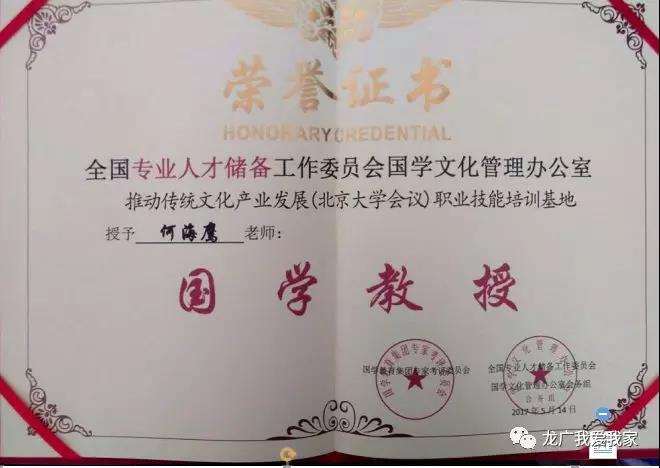 荣誉证书
HONORARY CREDENTIAL
全国专业人才储备工作委员会国学文化管理办公室
推动传统文化产业发展(北京大学会议)职业技能培训基地
授予 何海鹰 老师:
国学教授
国学教育集团专家考评委员会
全国专业人才储备工作委员会
国学文化管理办公室会务组
会务组
2017年5月14日
龙广我爱我家